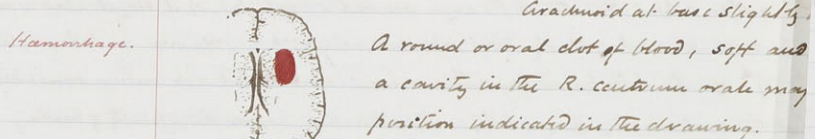 Arachnoid at base slightly
Hæmorrhage.
A round or oval clot of blood, soft and
a cavity in the R. centrum ovale may
position indicated in the drawing.